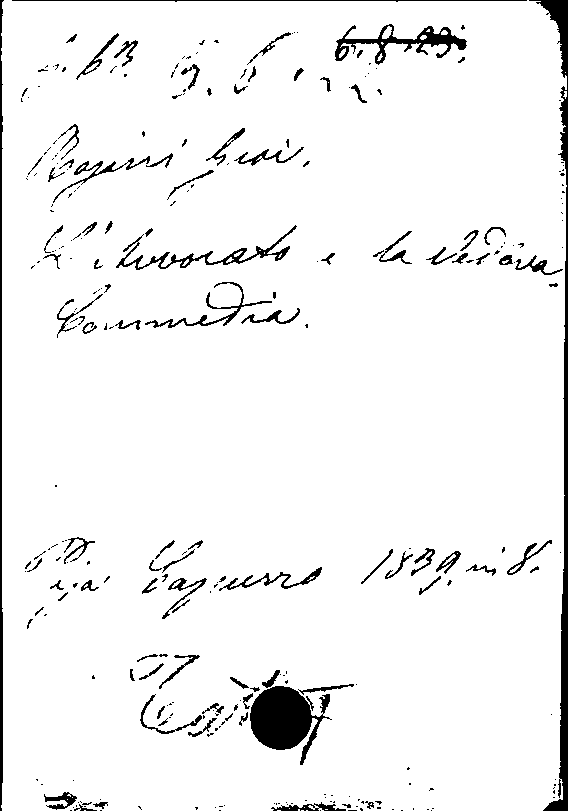 5. 6.
6.8.23.
Rosini Giov.
L'Avvocato e la Vedova.
Commedia.
Pisa Capurro 1839. in 8.